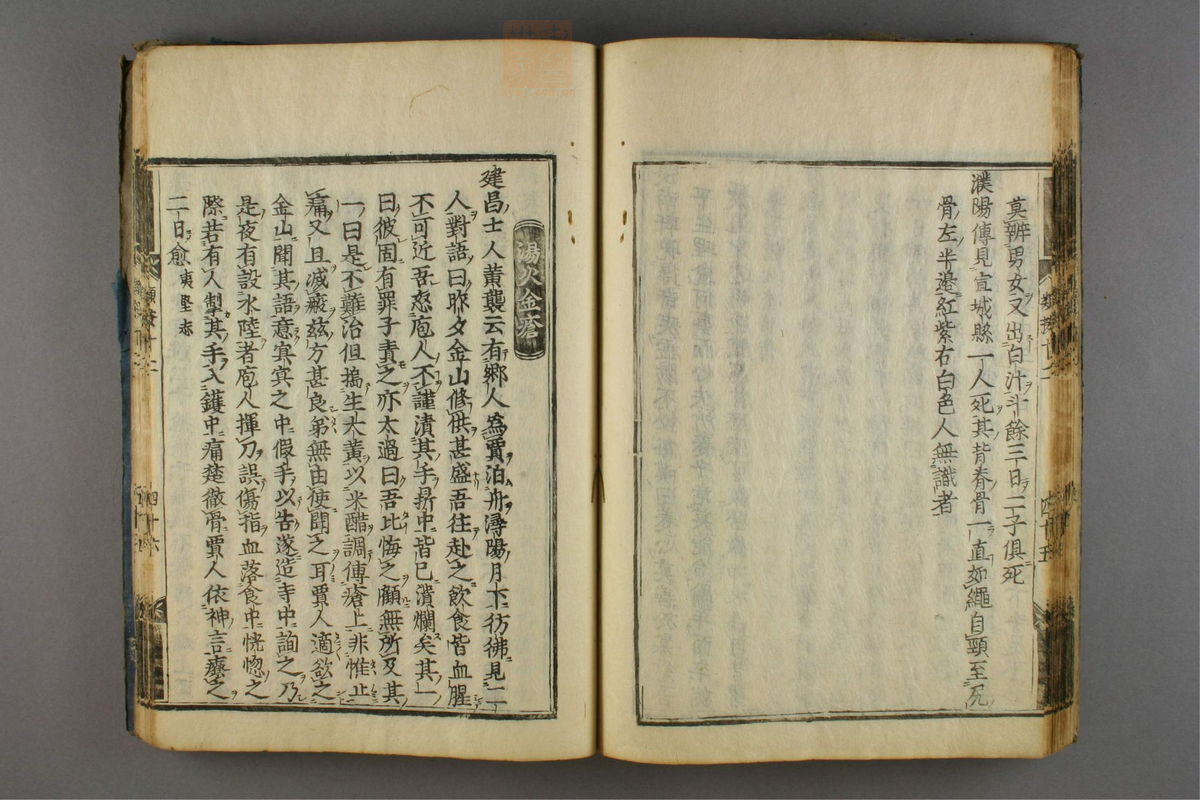 莫辨男女又出白汁斗餘三日二子俱死
濮陽傳見宣城縣一人死其背脊骨一直如繩自頸至尻
骨左半邊紅紫右白色人無識者
四十五
湯火金瘡
建昌士人黃襲云有鄉人爲賈泊舟潯陽月下彷彿見二
人對語曰昨夕金山修供甚盛吾往赴之飲食皆血腥
不可近吾怒庖人不謹漬其手鼎中皆已潰爛矣其一
曰彼固有罪子責之亦太過曰吾比悔之顧無所及其
一曰是不難治但搗生大黃以米醋調傅瘡上非惟止
痛又且滅瘢茲方甚良第無由使聞之耳賈人適欲之
金山聞其語意冥冥之中假手以告遂造寺中詢之乃
是夜有設水陸者庖人揮刀誤傷指血落食中恍惚之
際若有人掣其手入鑊中痛楚徹骨賈人依神言療之
二日愈夷堅志
四十六